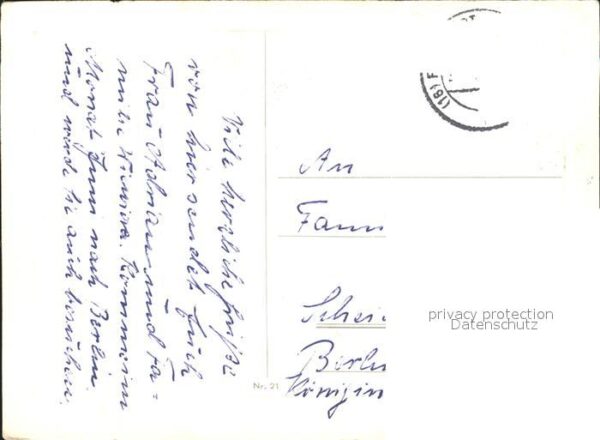 Viele herzliche Grüße
von hier sendet Euch
Frau Adrian und Fa=
milie Komme im
Monat Juni nach Berlin
und werde Sie auch besuchen.
Nr. 21
(16) F
An
Fam
Schei
Berli
Königin
privacy protection
Datenschutz